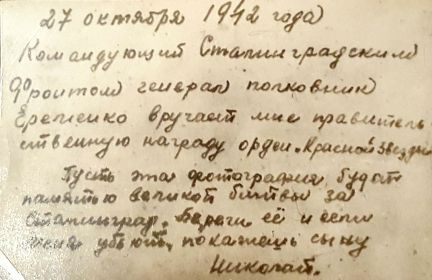 27 октября 1942 года
Командующий Сталинградским
фронтом генерал полковник
Еременко вручает мне правитель
ственную награду орден "Красной Звезды
Пусть эта фотография будет
памятью великой битвы за
Сталинград. Береги её и если
меня убьют, покажешь сыну
Николай.